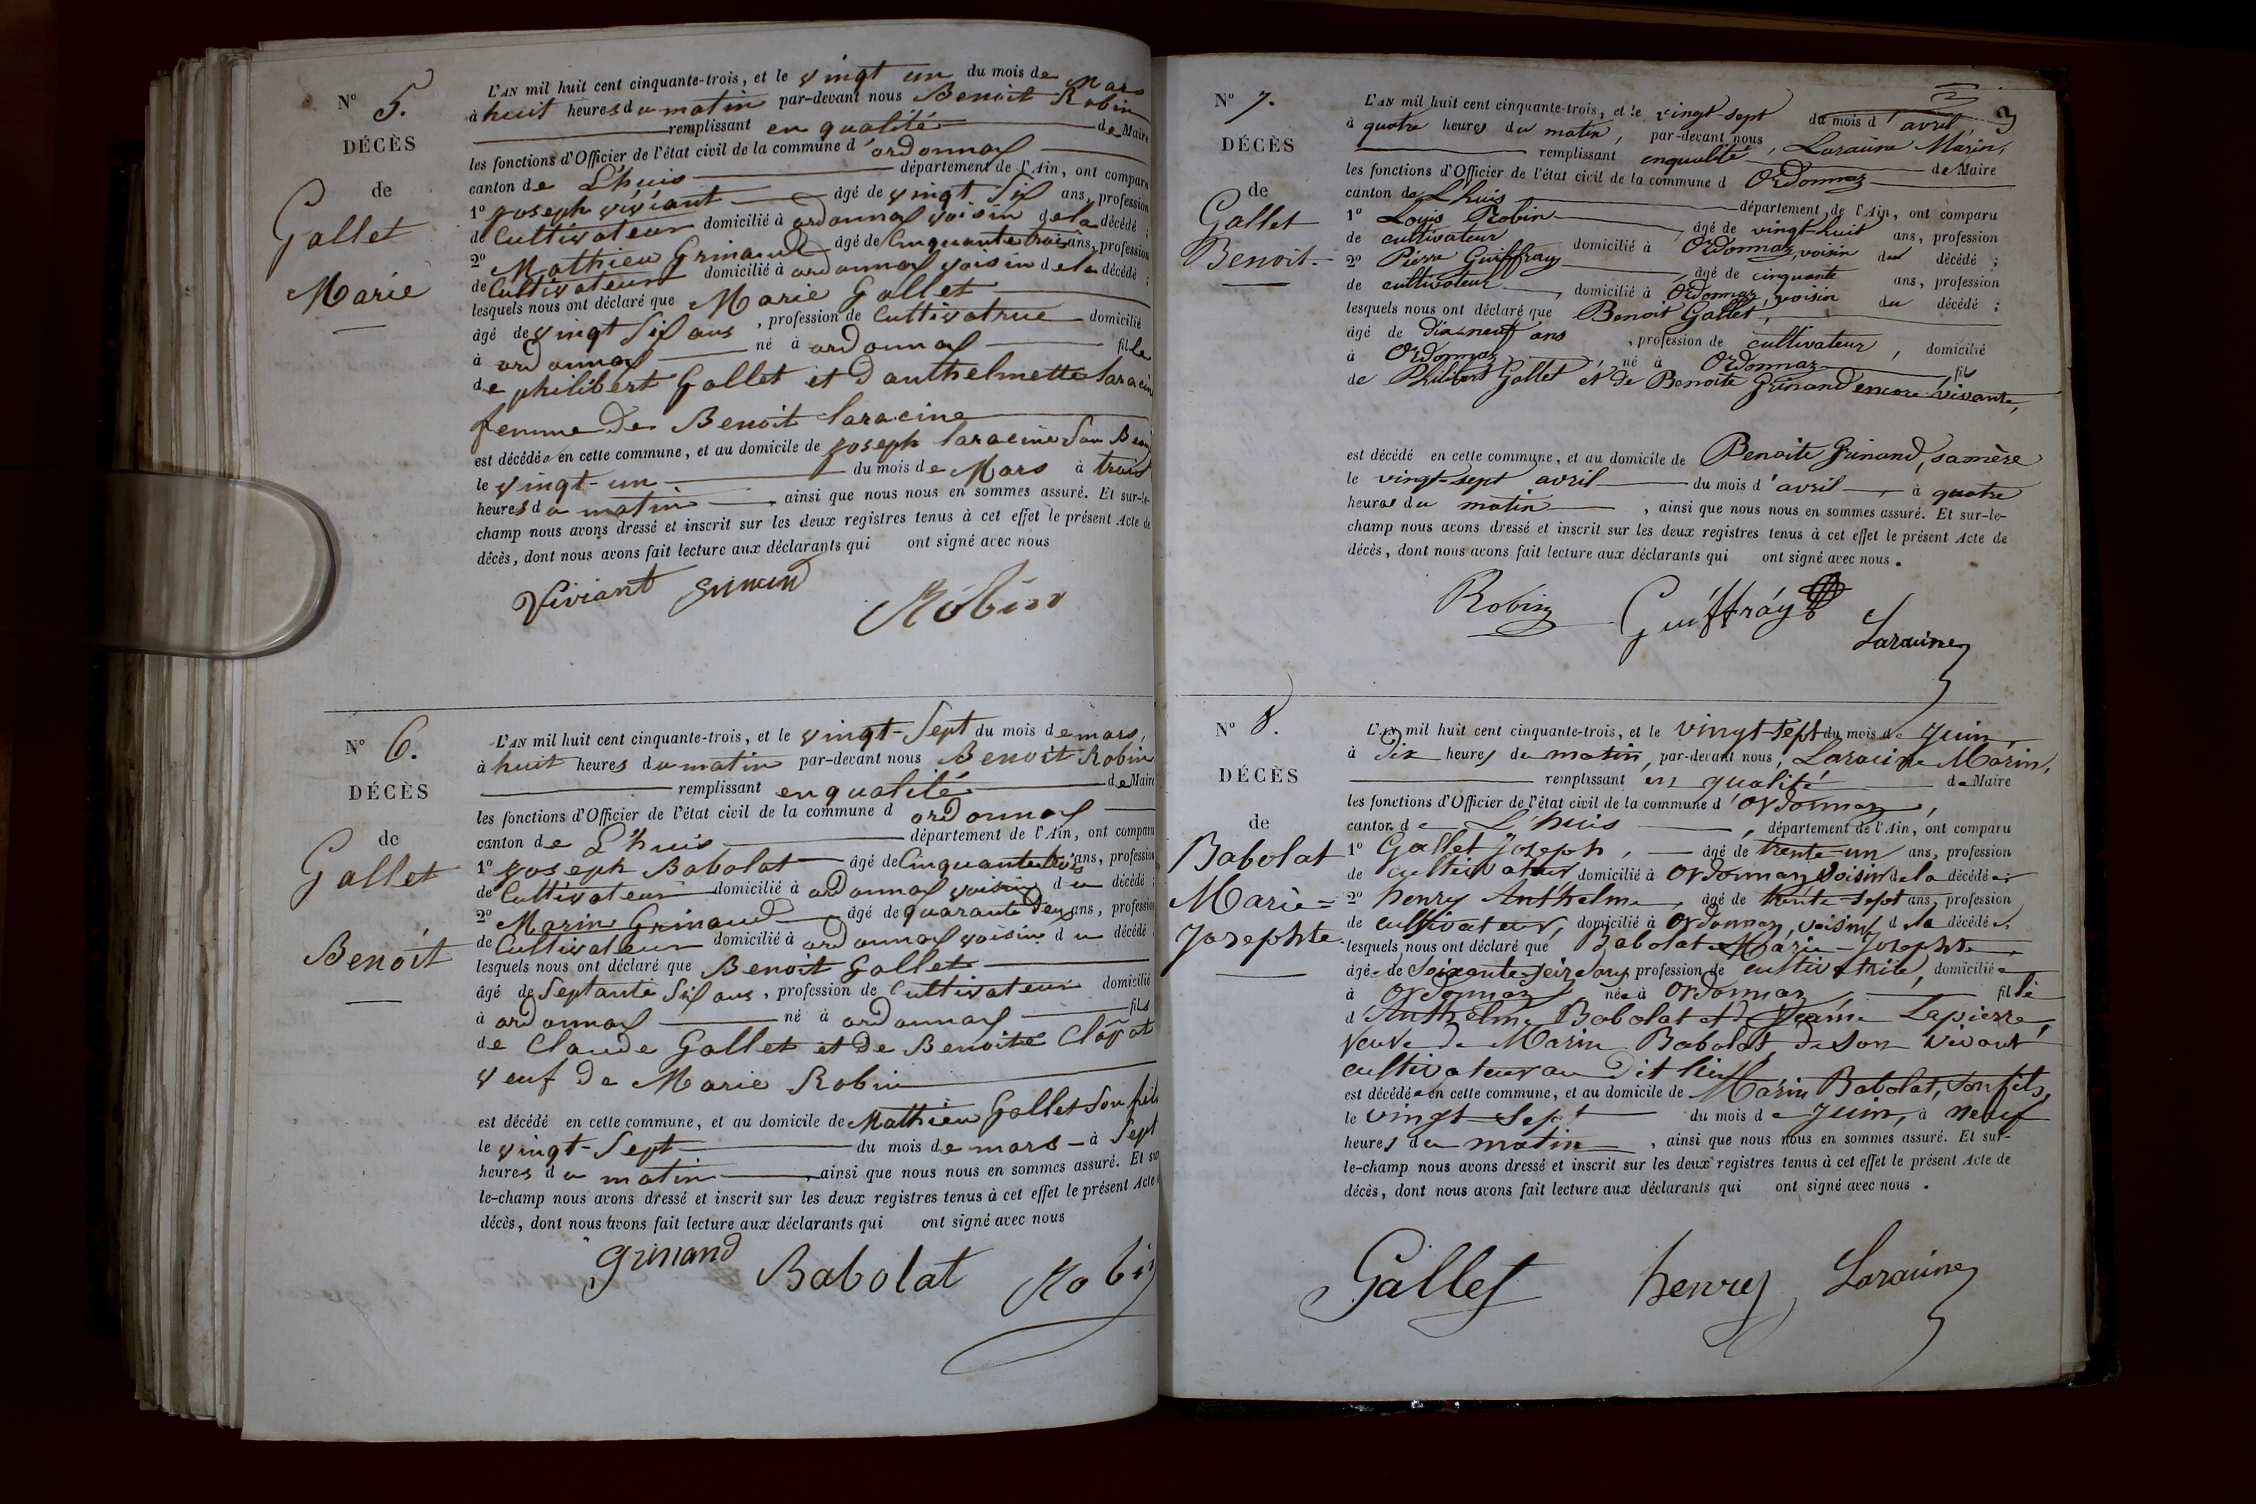 Nº 5.
DÉCÈS
de
Gallet
Marie
L'AN mil huit cent cinquante-trois, et le vingt un du mois de Mars
à huit heures du matin par-devant nous Benoit Robin
remplissant en qualité de Maire
les fonctions d'Officier de l'état civil de la commune d'ordonnax
canton de L'huis département de l'Ain, ont comparu
1º Joseph viviant âgé de vingt Six ans, profession
de Cultivateur domicilié à ordonnax voisin de la décédé ;
2º Mathieu Grinand âgé de Cinquante trois ans, profession
de Cultivateur domicilié à ordonnax voisin de la décédé ;
lesquels nous ont déclaré que Marie Gallet
âgé de vingt Six ans, profession de Cultivatrice domicilié
à ordonnax né à ordonnax fille
de philibert Gallet et Danthelmette Saracine
femme de Benoit Saracine
est décédée en cette commune, et au domicile de Joseph Saracine Son Beau
le vingt-un du mois de Mars à trois
heures du matin, ainsi que nous nous en sommes assuré. Et sur-le-
champ nous avons dressé et inscrit sur les deux registres tenus à cet effet le présent Acte de
décès, dont nous avons fait lecture aux déclarants qui ont signé avec nous
Viviant Grinand Robin
Nº 6.
DÉCÈS
de
Gallet
Benoit
L'AN mil huit cent cinquante-trois, et le vingt-Sept du mois de mars,
à huit heures du matin par-devant nous Benoit Robin
remplissant en qualité de Maire
les fonctions d'Officier de l'état civil de la commune d ordonnax
canton de L'huis département de l'Ain, ont comparu
1º Joseph Babolat âgé de Cinquante trois ans, profession
de Cultivateur domicilié à ordonnax voisin du décédé ;
2º Marin Grinand âgé de quarante deux ans, profession
de Cultivateur domicilié à ordonnax voisin du décédé
lesquels nous ont déclaré que Benoit Gallet
âgé de Septante Six ans, profession de Cultivateur domicilié
à ordonnax né à ordonnax fils
de Claude Gallet et de Benoite
veuf de Marie Robin
est décédé en cette commune, et au domicile de Mathieu Gallet Son fils
le vingt-Sept du mois de mars - à Sept
heures du matin, ainsi que nous nous en sommes assuré. Et sur
le-champ nous avons dressé et inscrit sur les deux registres tenus à cet effet le présent Acte
décès, dont nous avons fait lecture aux déclarants qui ont signé avec nous
Grinand Babolat Robin
3
Nº 7.
DÉCÈS
de
Gallet
Benoit.
L'AN mil huit cent cinquante-trois, et le vingt-sept du mois d'avril,
à quatre heures du matin, par-devant nous, Laracine Marin,
remplissant en qualité de Maire
les fonctions d'Officier de l'état civil de la commune d Ordonnaz
canton de L'huis département de l'Ain, ont comparu
1º Louis Robin âgé de vingt-huit ans, profession
de cultivateur domicilié à Ordonnaz, voisin du décédé ;
2º Pierre Guiffray âgé de cinquante ans, profession
de cultivateur, domicilié à Ordonnaz, voisin du décédé ;
lesquels nous ont déclaré que Benoit Gallet,
âgé de dix-neuf ans, profession de cultivateur, domicilié
à Ordonnaz, né à Ordonnaz fils
de Philibert Gallet et de Benoite Grinand encore vivante,
est décédé en cette commune, et au domicile de Benoite Grinand, sa mère
le vingt-sept avril du mois d'avril, à quatre
heures du matin, ainsi que nous nous en sommes assuré. Et sur-le-
champ nous avons dressé et inscrit sur les deux registres tenus à cet effet le présent Acte de
décès, dont nous avons fait lecture aux déclarants qui ont signé avec nous.
Robin Guiffray Laracine
Nº 8.
DÉCÈS
de
Babolat
Marie=
Josephte.
L'AN mil huit cent cinquante-trois, et le vingt-sept du mois de juin,
à Dix heures du matin, par-devant nous, Laracine Marin,
remplissant en qualité de Maire
les fonctions d'Officier de l'état civil de la commune d'Ordonnaz,
canton de L'huis, département de l'Ain, ont comparu
1º Gallet Joseph, âgé de trente-un ans, profession
de cultivateur domicilié à Ordonnaz voisin de la décédée
2º henry Anthelme, âgé de trente-sept ans, profession
de cultivateur, domicilié à Ordonnaz, voisin de la décédée.
lesquels nous ont déclaré que Babolat Marie-Josephte
âgée de Soixante-seize ans, profession de cultivatrice, domiciliée
à Ordonnaz née à Ordonnaz, fille
d'Anthelme Babolat et de Jeanne Lapierre,
veuve de Marin Babolat, de son vivant
cultivateur au Dit lieu
est décédée en cette commune, et au domicile de Marin Babolat, son fils,
le vingt Sept du mois de juin, à neuf
heures du matin, ainsi que nous nous en sommes assuré. Et sur-
le-champ nous avons dressé et inscrit sur les deux registres tenus à cet effet le présent Acte de
décès, dont nous avons fait lecture aux déclarants qui ont signé avec nous.
Gallet henry Laracine